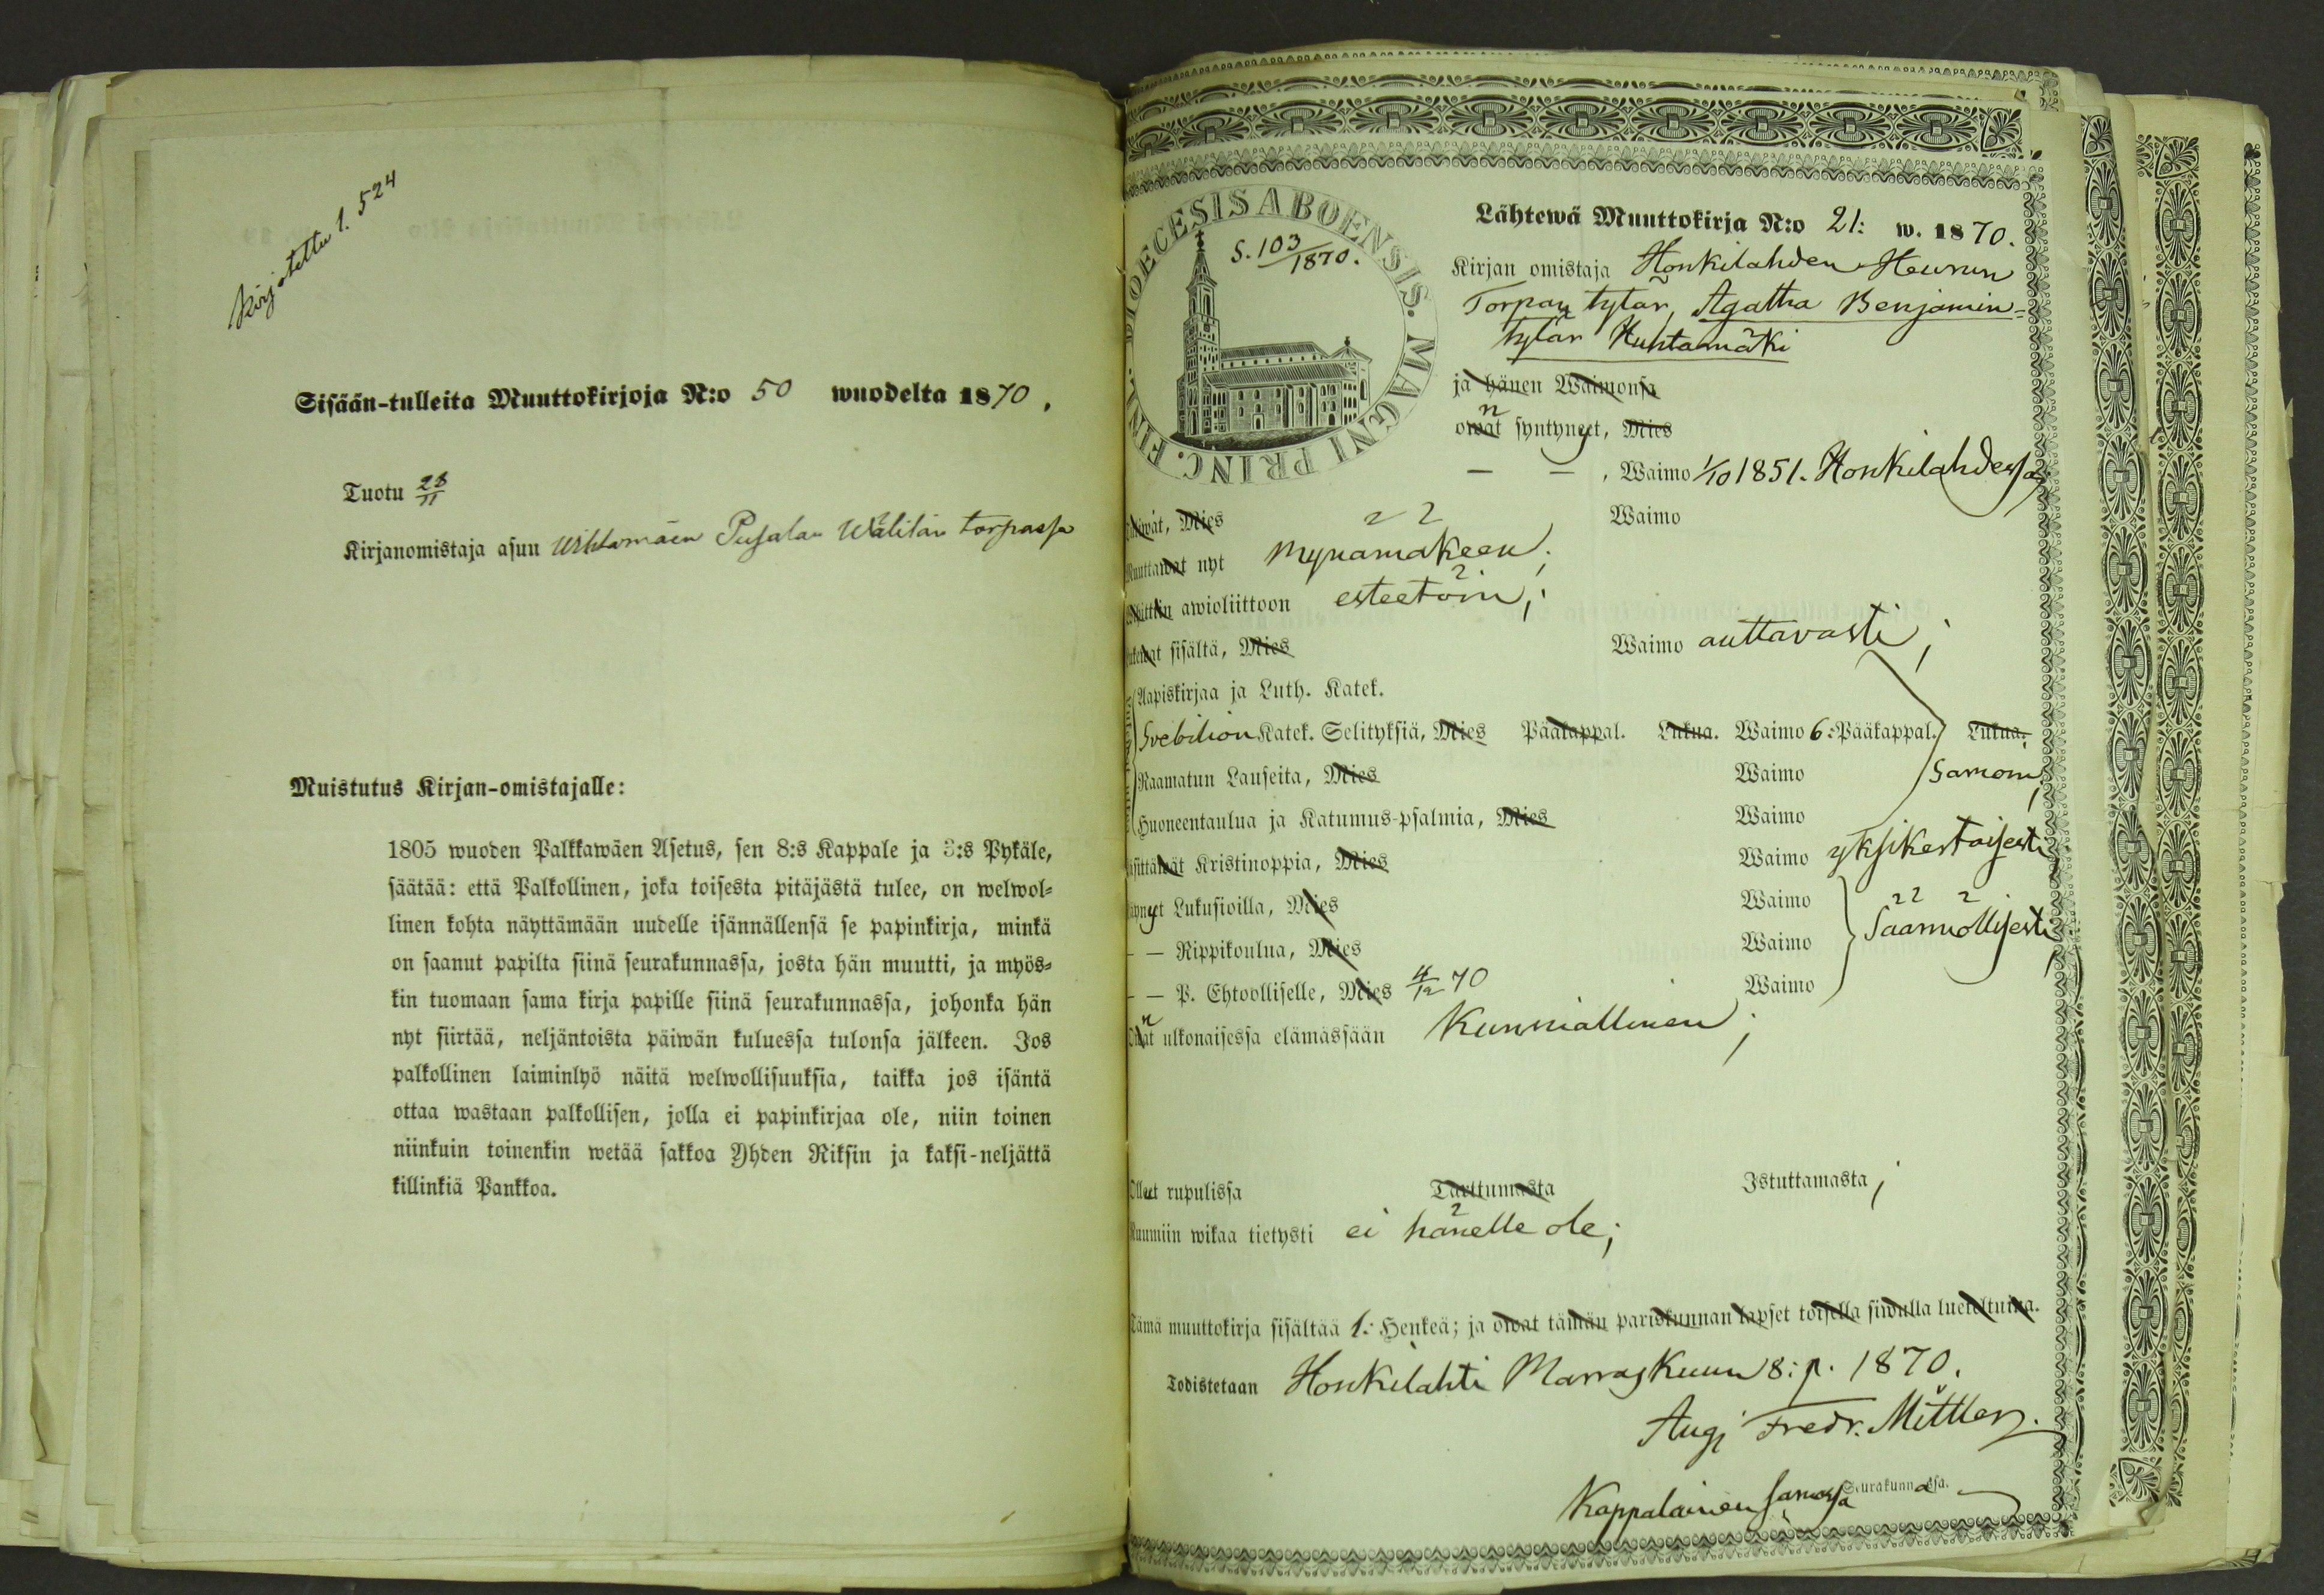 Kirjotettu 1. 524
Sisään-tulleita Muuttokirjoja N:o 50 wuodelta 1870.
Tuotu 28/11
Kirjanomistaja asuu Uhtamäen Wälilän torpassa
Muistutus Kirjan-omistajalle:
1805 wuoden Palkkawäen Asetus, sen 8:s Kappale ja 3:s Pykäle,
säätää: että Palkollinen, joka toisesta pitäjästä tulee, on welwol-
linen kohta näyttämään uudelle isännällensä se papinkirja, minkä
on saanut papilta siinä seurakunnassa, josta hän muutti, ja myös-
kin tuomaan sama kirja papille siinä seurakunnassa, johonka hän
nyt siirtää, neljäntoista päiwän kuluessa tulonsa jälkeen. Jos
palkollinen laiminlyö näitä welwollisuuksia, taikka jos isäntä
ottaa wastaan palkollisen, jolla ei papinkirjaa ole, niin toinen
niinkuin toinenkin wetää sakkoa Yhden Riksin ja kaksi-neljättä
killinkiä Pankkoa.
DIOECESIS ABOENSIS. MAGNI PRINC. FINL.
S. 103/1870.
Lähtewä Muuttokirja N:o 21: w. 1870.
Kirjan omistaja Honkilahden Heurun
Torpan tytär, Agatha Benjamin-
tytär Huhtamäki
ja hänen Waimonsa
owat n syntyneet, Mies
— — , Waimo 1/10 1851. Honkilahdessa
Tuliwat, Mies Waimo
Muuttawat nyt Mynämäkeen;
awioliittoon esteetöin;
Lukewat sisältä, Mies Waimo auttavasti;
Aapiskirjaa ja Luth. Katek.
Svebilion Katek. Selityksiä, Mies Pääkappal. Lukua. Waimo 6: Pääkappal. Lukua.
Raamatun Lauseita, Mies Waimo Samoin;
Huoneentaulua ja Katumus-psalmia, Mies Waimo
Käsittäwät Kristinoppia, Mies Waimo yksikertaisesti
Käynyt Lukusioilla, Mies Waimo
— — Rippikoulua, Mies Waimo Säännöllisesti
— — P. Ehtoolliselle, Mies 4/12 70 Waimo
Owat n ulkonaisessa elämässään Kunniallinen;
Olleet rupulissa Tarttumasta Istuttamasta;
Ruumiin wikaa tietysti ei hänelle ole;
Tämä muuttokirja sisältää 1: Henkeä; ja owat tämän pariskunnan lapset toisella siwulla lueteltuina.
Todistetaan Honkilahti Marraskuun 8: p. 1870.
Aug. Fredr. Mittler.
Kappalainen samassa Seurakunnassa.